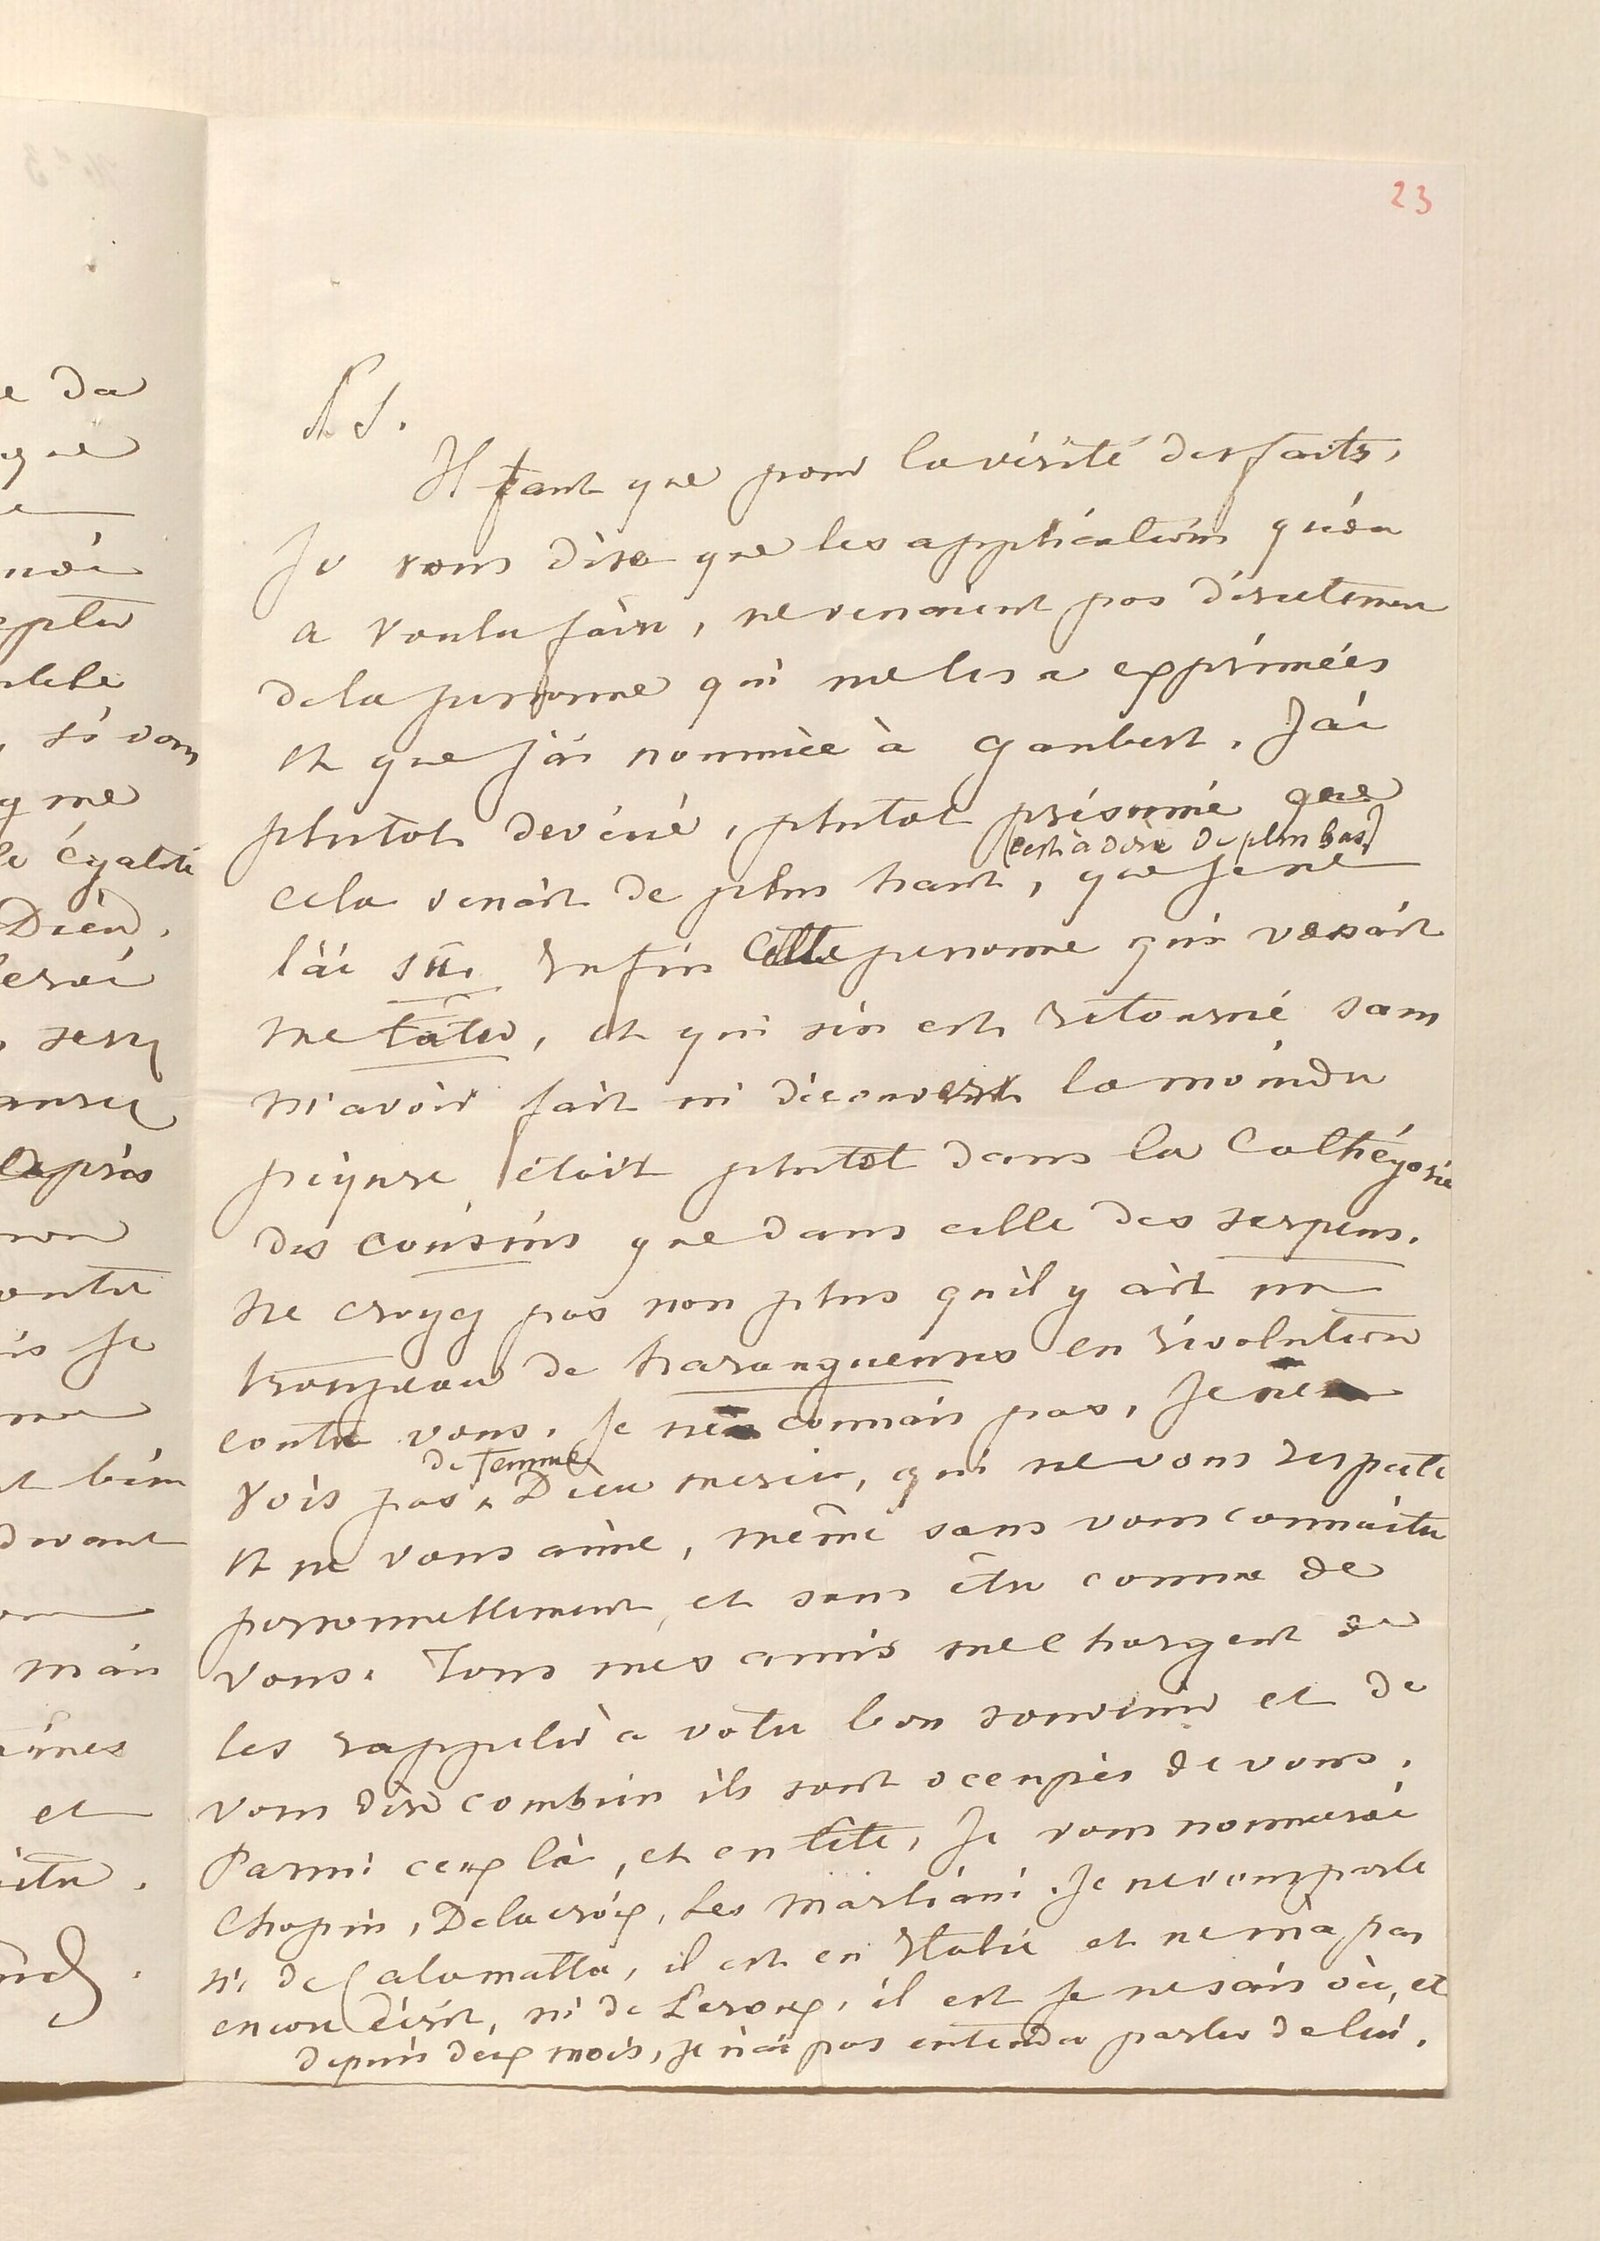 23
e da
que
uoi
epter
, si vous
q me
e égalité
Dieu.
serai
serez
après
non
entre
is je
me
t bien
devant
mais
aimes
et
P.S.
Il faut que pour la vérité des faits,
Je vous dise que les applications qu'on
a voulu faire, ne venaient pas directement
de la personne qui me les a exprimées
et que j'ai nommée à Gaubert. J'ai
plutot deviné, plutot présumé que
(c'est à dire de plus bas)
cela venait de plus haut, que je ne
l'ai sû. Enfin cette personne qui venait
me tater, et qui s'en est retourné sans
m'avoir fait ni découvert la moindre
piqure était plutot dans la cathégorie
des cousins que dans celle des serpens.
Ne croyez pas non plus qu'il y ait un
troupeau de harangueuses en révolution
contre vous. Je n'en connais pas, Je ne
de femme
vois pas, Dieu merci, qui ne vous respecte
et ne vous aime, même sans vous connaitre
personnellement et sans être connue de
vous. Tous mes amis me chargent de
les rappeler à votre bon souvenir et de
vous dire combien ils sont occupés de vous.
Parmi ceux là, et en tête, Je vous nommerai
Chopin, Delacroix, les Marliani. Je ne vous parle
ni de Calamatta, il est en Italie et ne m'a pas
encore écrit, ni de Leroux, il est je ne sais où, et
depuis deux mois, je n'ai pas entendu parler de lui.